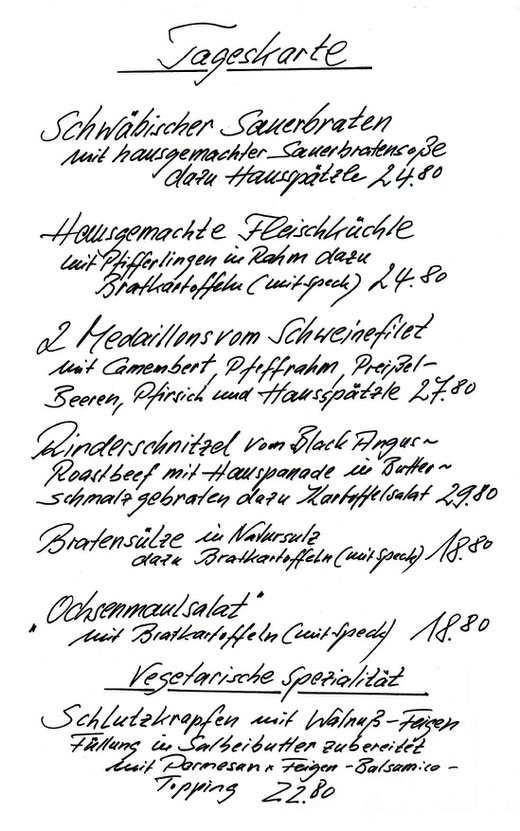 Tageskarte
Schwäbischer Sauerbraten
mit hausgemachter Sauerbratensoße
dazu Hausspätzle 24.80
Hausgemachte Fleischküchle
mit Pfifferlingen in Rahm dazu
Bratkartoffeln (mit Speck) 24.80
2 Medaillons vom Schweinefilet
mit Camembert, Pfeffrahm, Preißel-
Beeren, Pfirsich und Hausspätzle 27.80
Rinderschnitzel vom Black Angus~
Roastbeef mit Hauspanade in Butter~
schmalz gebraten dazu Kartoffelsalat 29.80
Bratensülze in Natursulz
dazu Bratkartoffeln (mit Speck) 18.80
"Ochsenmaulsalat"
mit Bratkartoffeln (mit Speck) 18.80
Vegetarische Spezialität
Schlutzkrapfen mit Walnuß-Feigen
Füllung in Salbeibutter zubereitet
mit Parmesan x Feigen-Balsamico-
Topping 22.80